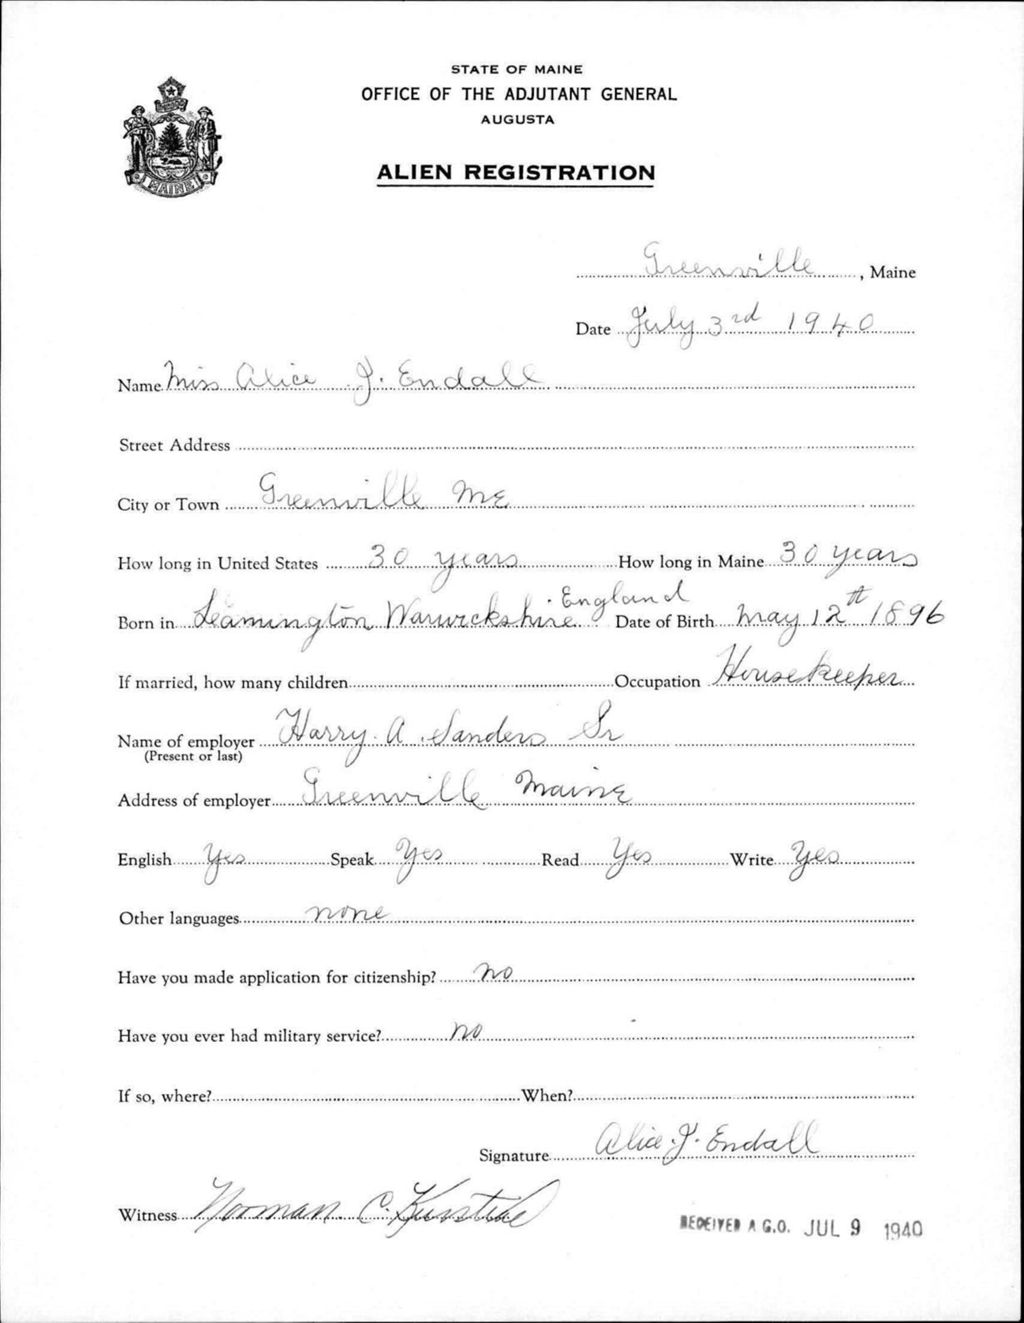 STATE OF MAINE
OFFICE OF THE ADJUTANT GENERAL
AUGUSTA
ALIEN REGISTRATION
MAINE
Greenville, Maine
Date July 3rd 1940
Name Miss Alice J. Endall
Street Address
City or Town Greenville Me
How long in United States 30 years How long in Maine 30 years
Born in Leamington Warwickshire England Date of Birth May 12th 1896
If married, how many children Occupation Housekeeper
Name of employer Harry A. Sanders Sr
(Present or last)
Address of employer Greenville Maine
English Yes Speak Yes Read Yes Write Yes
Other languages none
Have you made application for citizenship? no
Have you ever had military service? no
If so, where? When?
Signature Alice J. Endall
Witness Norman C.
RECEIVED A.G.O. JUL 9 1940